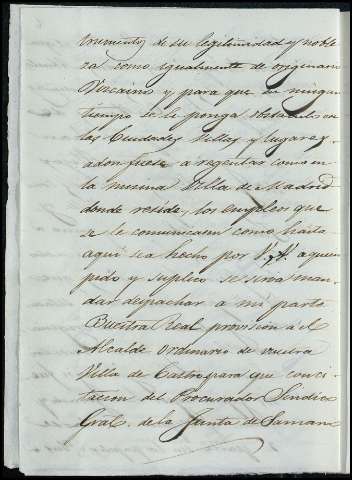 trumento de su legitimidad y noble
za como igualmente de originario
Vizcaino y para que en ningun
tiempo se le ponga obstaculo en
las Ciudades Villas y lugares
adonfuese a regentar como en
la misma Villa de Madrid
donde reside, los empleos que
se le comunicasen como hasta
aqui se a hecho por V. A. a quien
pido y suplico se sirva man
dar despachar a mi parte
Buestra Real provision á el
Alcalde Ordinario de vuestra
Villa de Castro para que con ci
tacion del Procurador Sindico
Gral. de la Junta de Saman